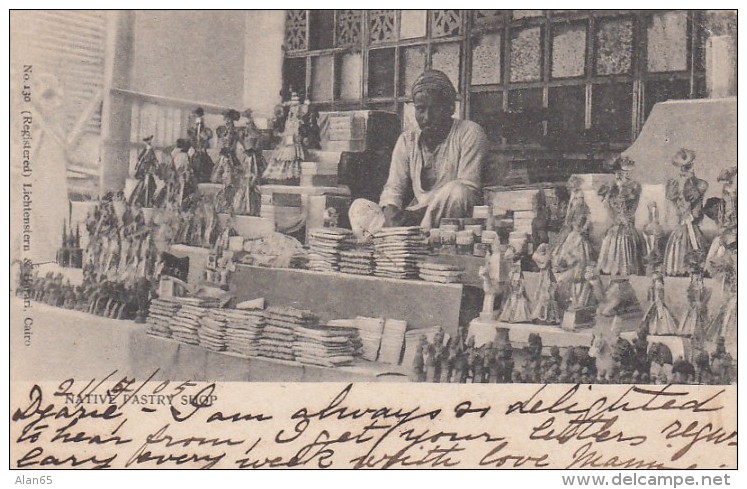 No. 130 (Registered) Lichtenstern & Harari, Cairo
21/5/05
NATIVE PASTRY SHOP
Dearie - I am always so delighted
to hear from, I get your letters regu-
lary every week with love Mamma
Alan65
© www.delcampe.net